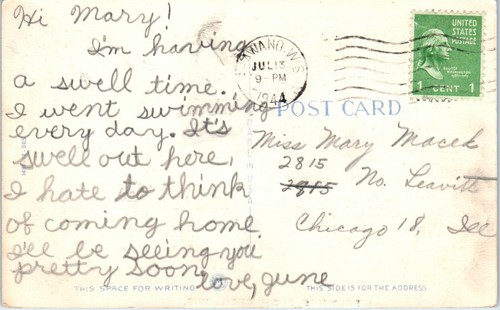 Hi Mary!
I'm having
a swell time.
I went swimming
every day. It's
swell out here,
I hate to think
of coming home
I'll be seeing you
pretty soon
love, June
THIS SPACE FOR WRITING
WIS.
JUL 13
9 - PM
1944
UNITED
STATES
POSTAGE
1 CENT 1
POST CARD
Miss Mary Macek
2815
No. Leavitt
Chicago 18, Ill
THIS SIDE IS FOR THE ADDRESS